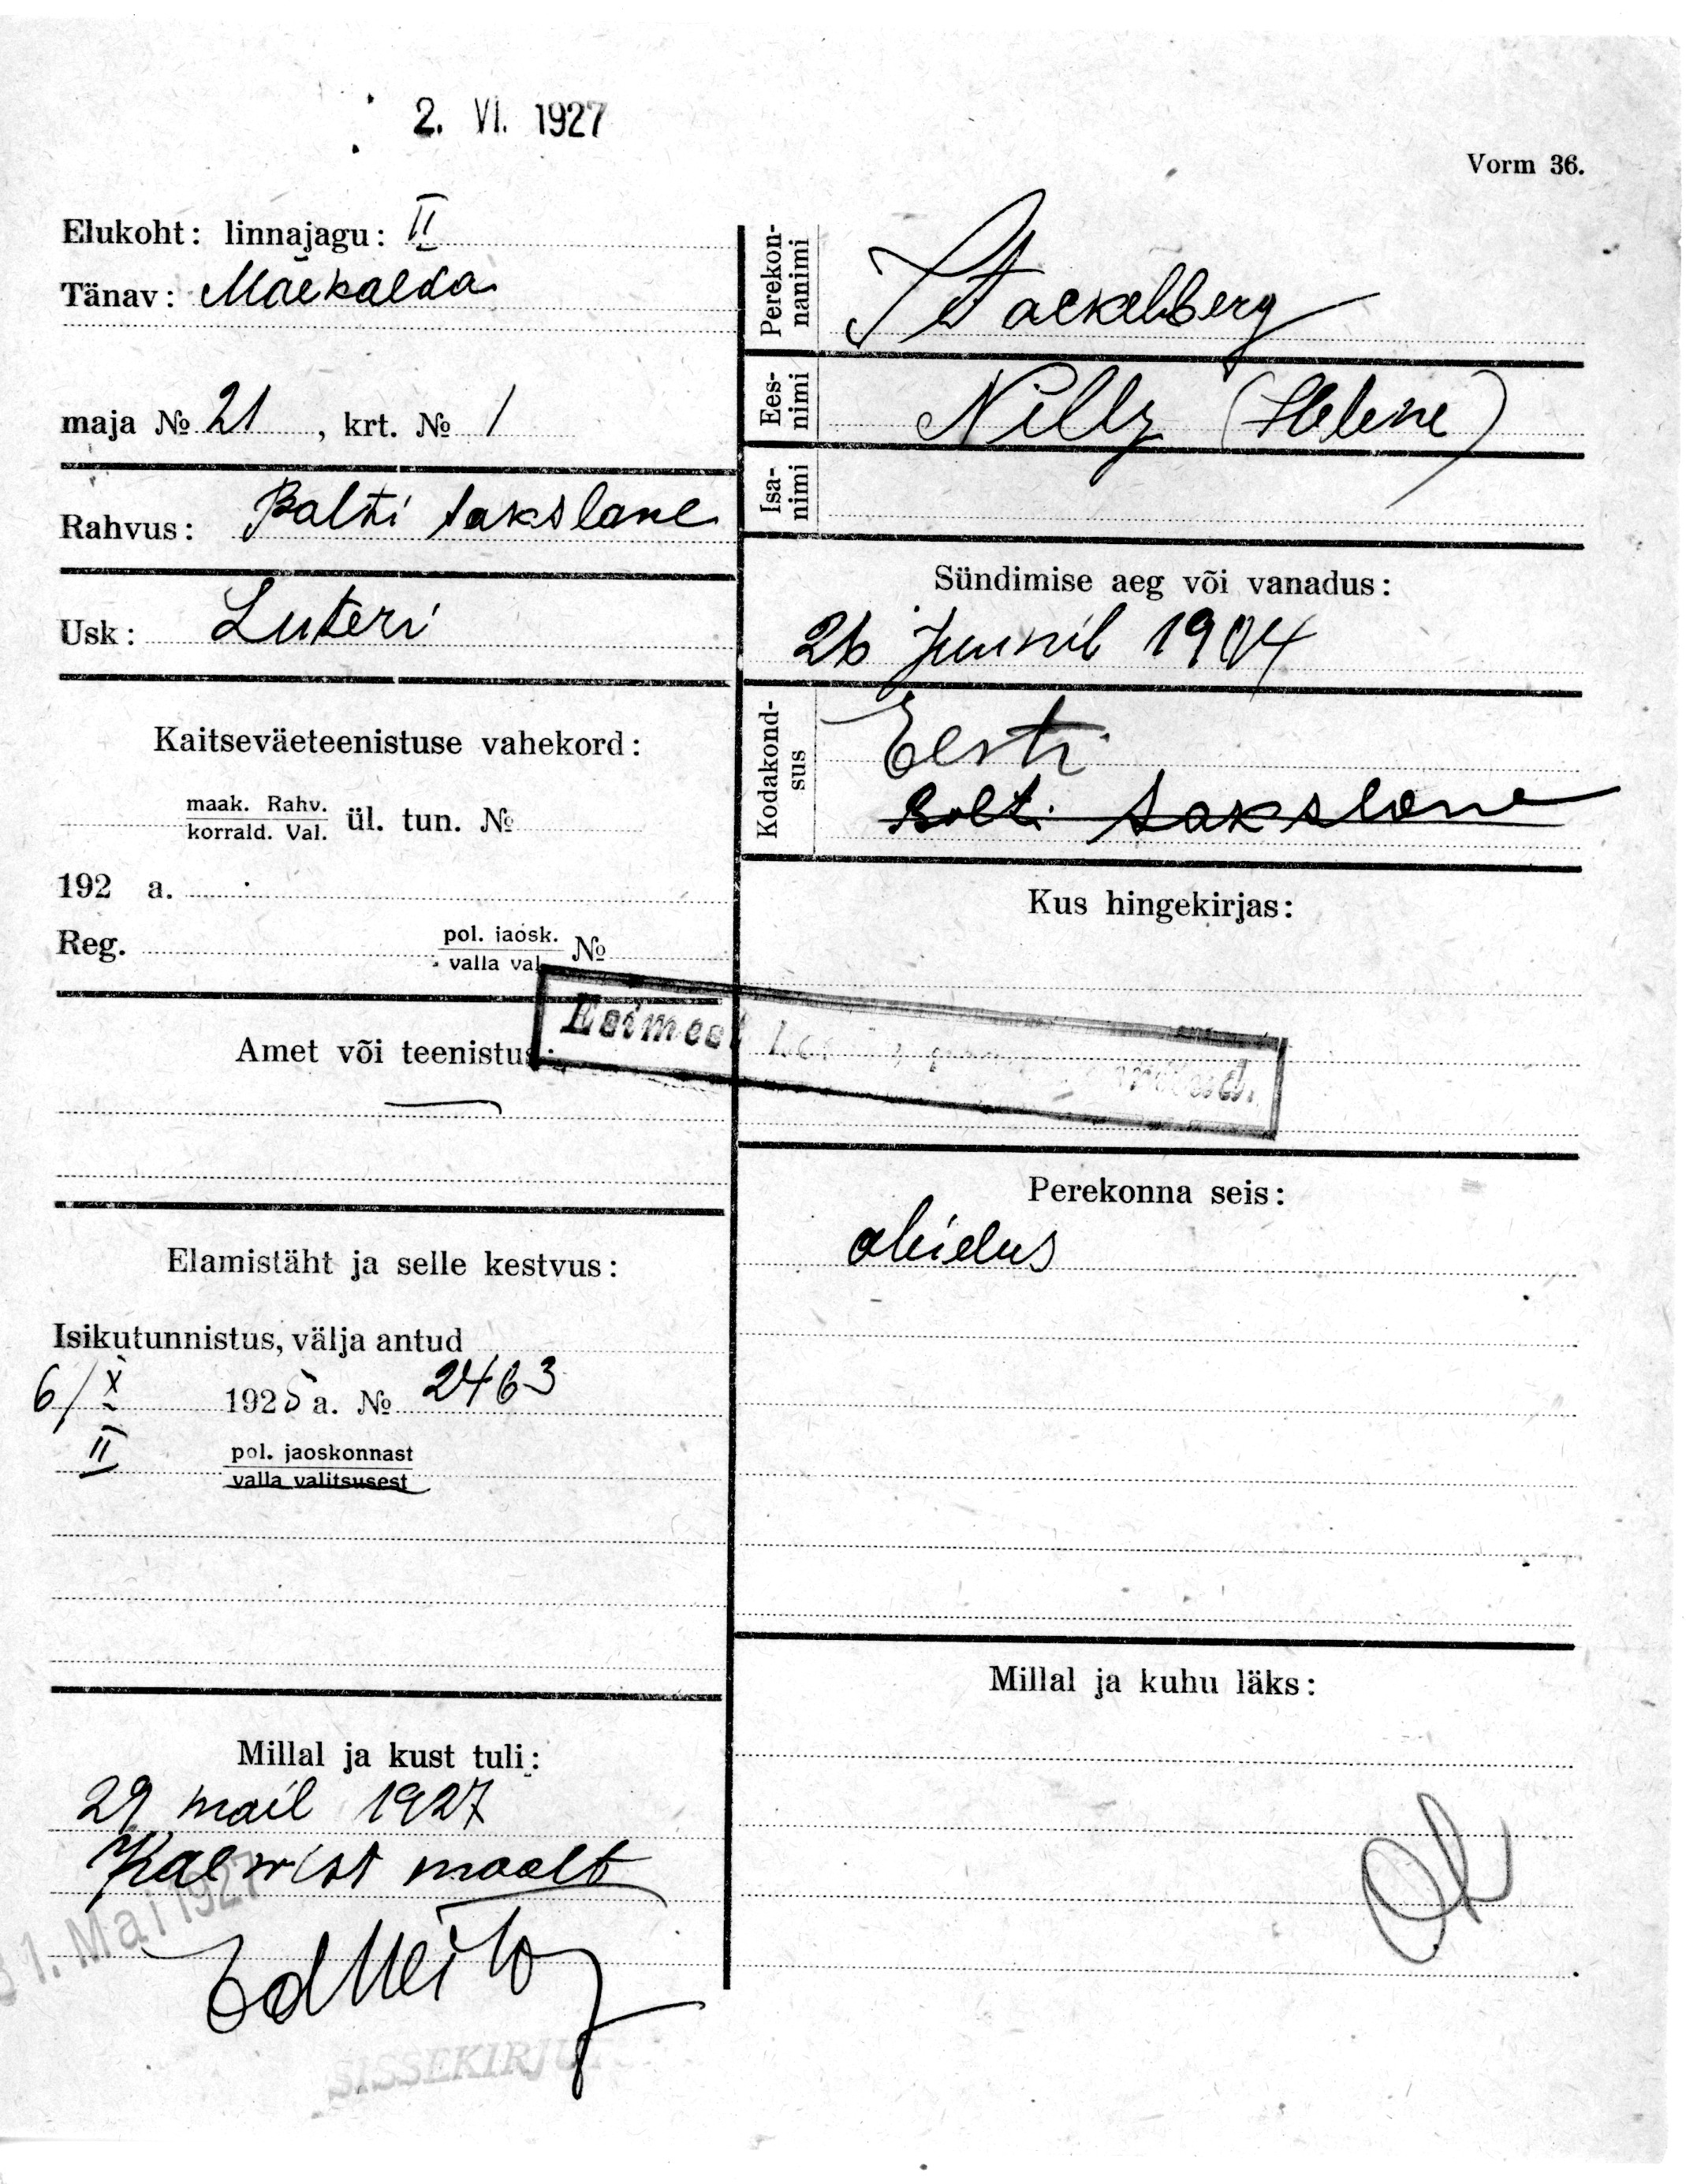 2. VI. 1927
Vorm 36.
Elukoht: linnajagu: II
Tänav: Mäekalda
maja № 21, krt. № 1
Rahvus: Balti sakslane
Usk: Luteri
Kaitseväeteenistuse vahekord:
maak. Rahv.
korrald. Val. ül. tun. №
192 a.
Reg. pol. jaosk. №
valla val.
Amet või teenistus:
—
Elamistäht ja selle kestvus:
Isikutunnistus, välja antud
6/X 1925 a. № 2463
II pol. jaoskonnast
valla valitsusest
Millal ja kust tuli:
29 mail 1927
maalt
31. Mai 1927
SISSEKIRJU
Perekon-
nanimi
Stackelberg
Ees-
nimi
Nilly (Helene)
Isa-
nimi
Sündimise aeg või vanadus:
26 juunil 1904
Kodakond-
sus
Eesti
Balti sakslane
Kus hingekirjas:
Esimest
Perekonna seis:
Millal ja kuhu läks: